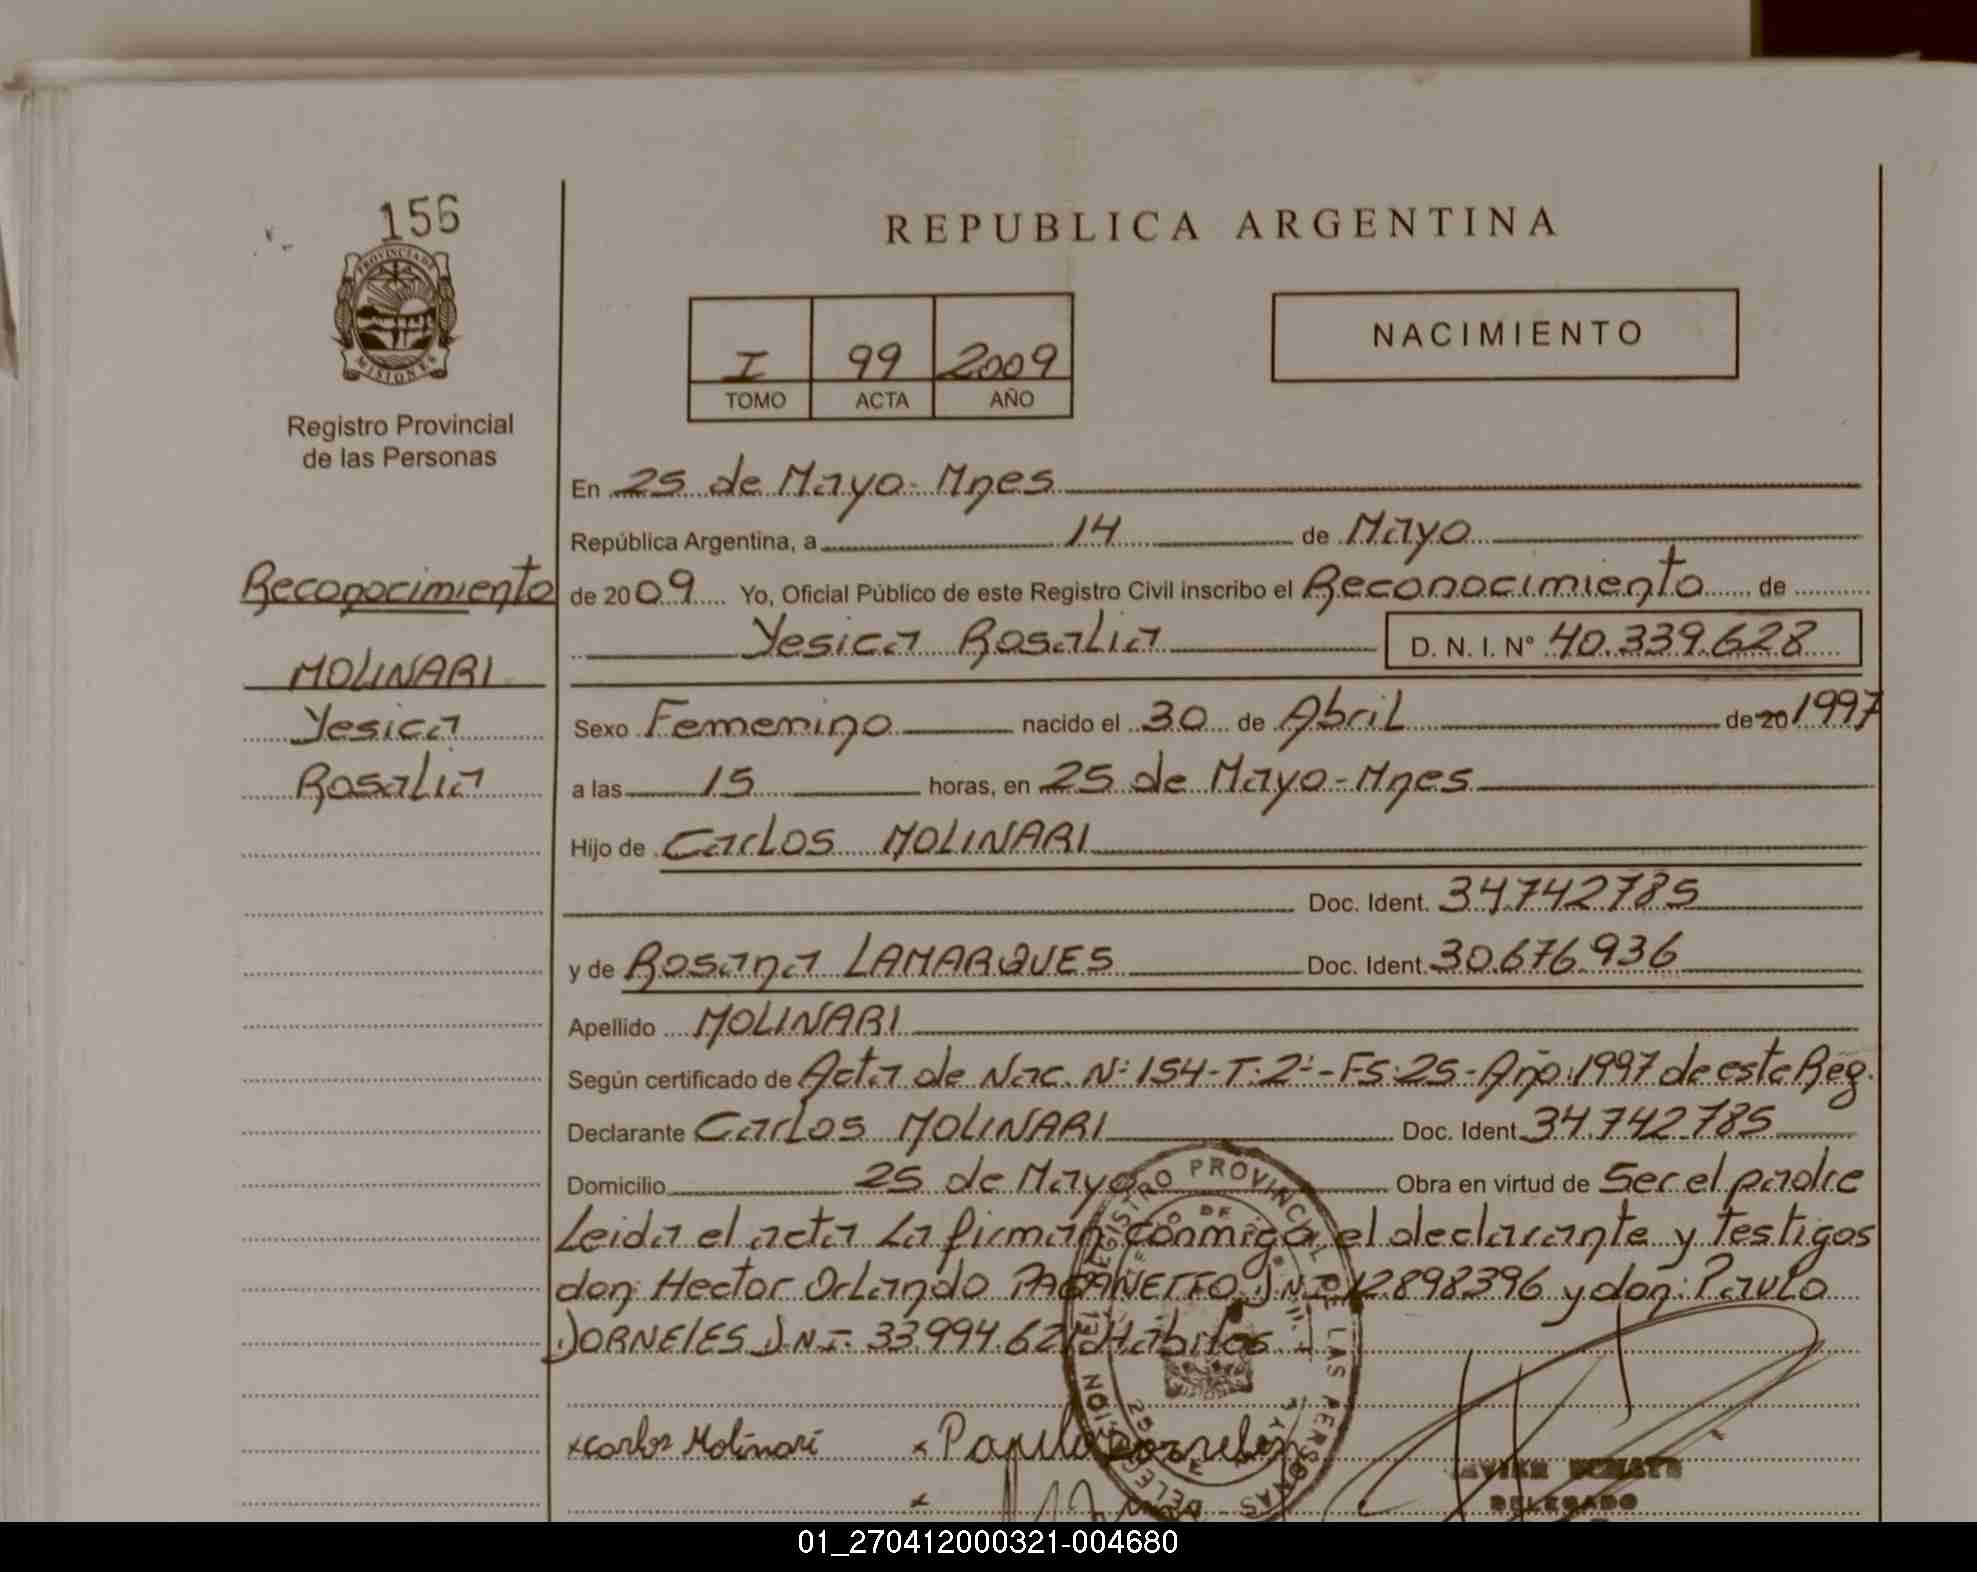 156
PROVINCIA DE
MISIONES
Registro Provincial
de las Personas
Reconocimiento
MOLINARI
Yesica
Rosalia
REPUBLICA ARGENTINA
I 99 2009
TOMO ACTA AÑO
NACIMIENTO
En 25 de Mayo - Mnes
República Argentina, a 14 de Mayo
de 2009 Yo, Oficial Público de este Registro Civil inscribo el Reconocimiento de
Yesica Rosalia D. N. I. N° 40.339.628
Sexo Femenino nacido el 30 de Abril de 20 1997
a las 15 horas, en 25 de Mayo - Mnes
Hijo de Carlos MOLINARI
Doc. Ident. 34742785
y de Rosana LAMARQUES Doc. Ident. 30.676.936
Apellido MOLINARI
Según certificado de Acta de Nac. N: 154-T:2:-FS:25-Año:1997 de este Reg.
Declarante Carlos MOLINARI Doc. Ident. 34.742.785
Domicilio 25 de Mayo Obra en virtud de Ser el padre
Leida el acta La firman conmigo el declarante y testigos
don Hector Orlando D.N.I. 12898396 y don: Paulo
DORNELES D.N.I. 33.994.621 Habiles
x Carlos Molinari x Paulo Dorneles
REGISTRO PROVINCIAL DE LAS PERSONAS
DELEGADO
01_270412000321-004680